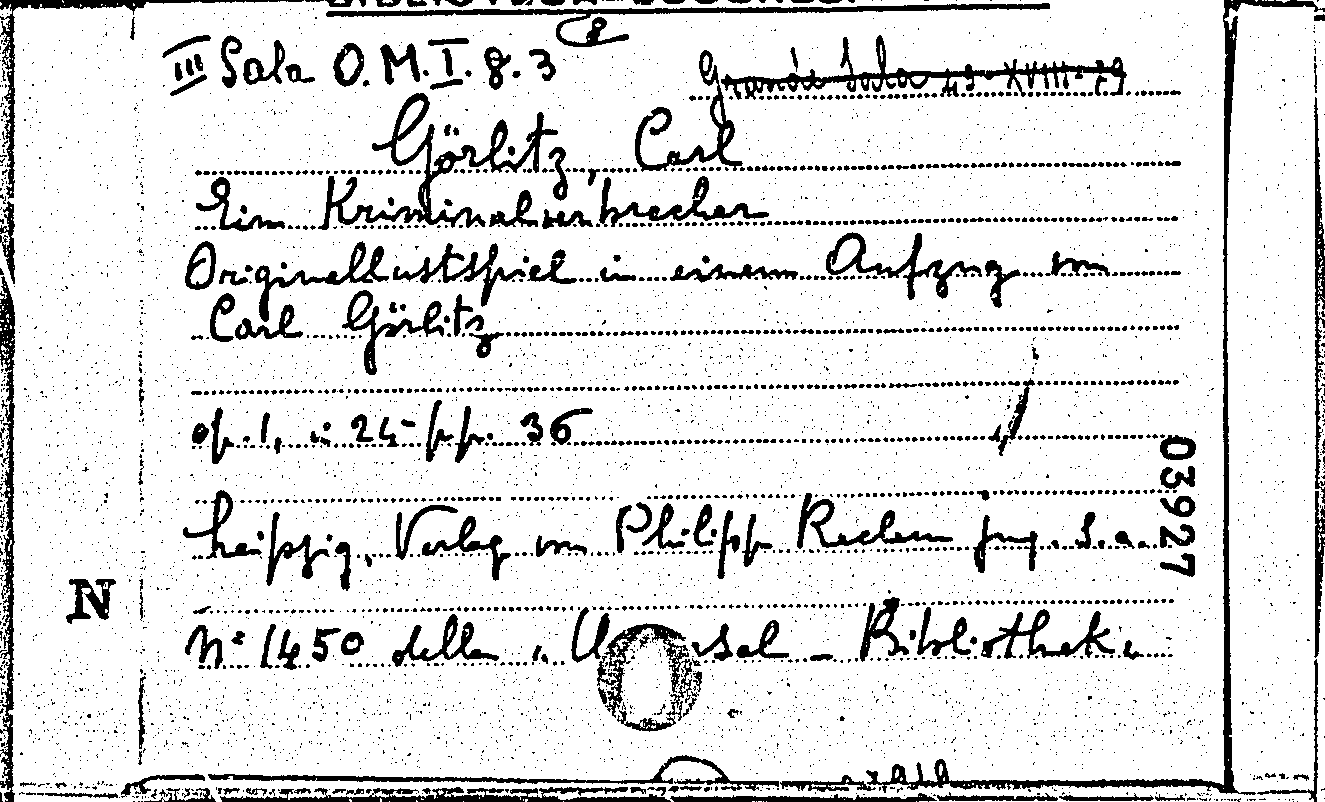 III Sala O.M.I.8.3 (8
Grande Sala 43-XVIII-79
Görlitz, Carl
Ein Kriminalverbrecher
Originallustspiel in einem Aufzug von
Carl Görlitz
op. 1, in 24- pp. 36
Leipzig, Verlag von Philipp Reclam jun. s.a.
03927
N
N° 1450 della "U sal - Bibliothek"